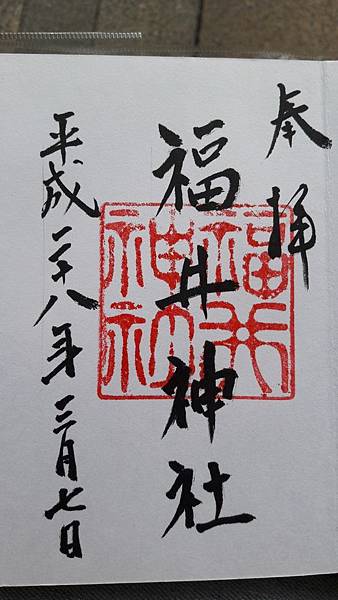 奉拝
福井神社
福井神社
平成二十八年三月七日